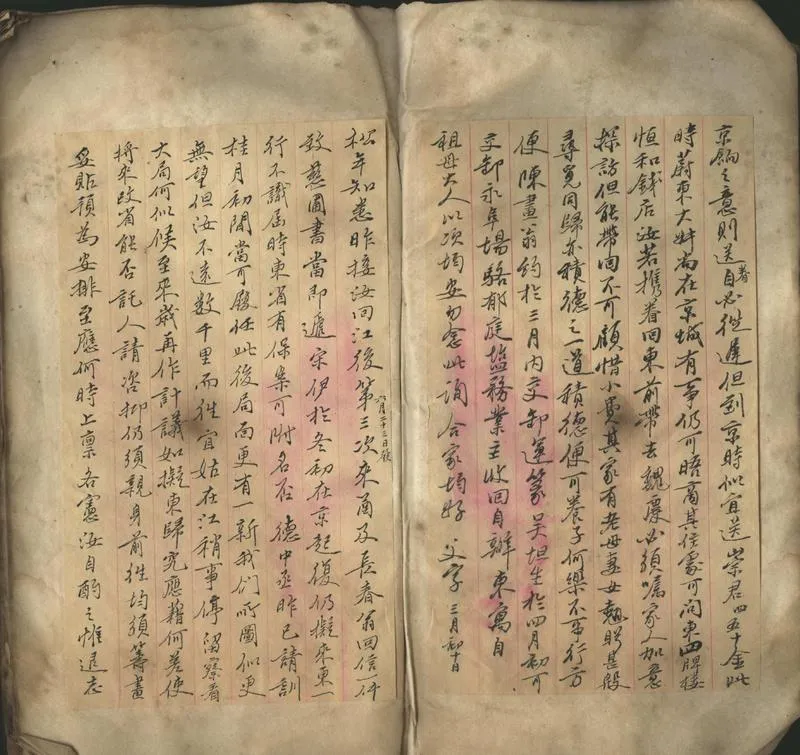 京餉之意則送眷自必從遲但到京時似宜送崇君四五十金此
時蔚東大姊尚在京城有事仍可晤商其住處可問東四牌樓
恒和錢店汝若携眷回東前帶去魏慶必須囑家人加意
探訪但能帶回不可顧惜小費其家有老母妻女懸盼甚殷
尋覓同歸亦積德之一道積德便可養子何樂不為行方
便陳畫翁約於三月內交卸運篆吳坦生於四月初可
交卸永阜場駱郁庭鹽務業主收回自辦東寓自
祖母大人以次均安勿念此詢合家均好 父字 三月初十日
松年知悉昨接汝回江後第三次來函及長春翁回信一件
六月二十三日發
致慈圃書當即遞宋伊於冬初在京起復仍擬來東一
行不識屆時東省有保案可附名否 德中丞昨已請訓
桂月初間當可履任此後局面更有一新我们所圖似更
無望但汝不遠數千里而往宜姑在江稍事停留察看
大局何似候至來歲再作計議如擬東歸究應藉何差使
將來改省能否託人請咨抑仍須親身前往均須籌畫
妥貼預為安排至應何時上稟各憲汝自酌之惟遺忘